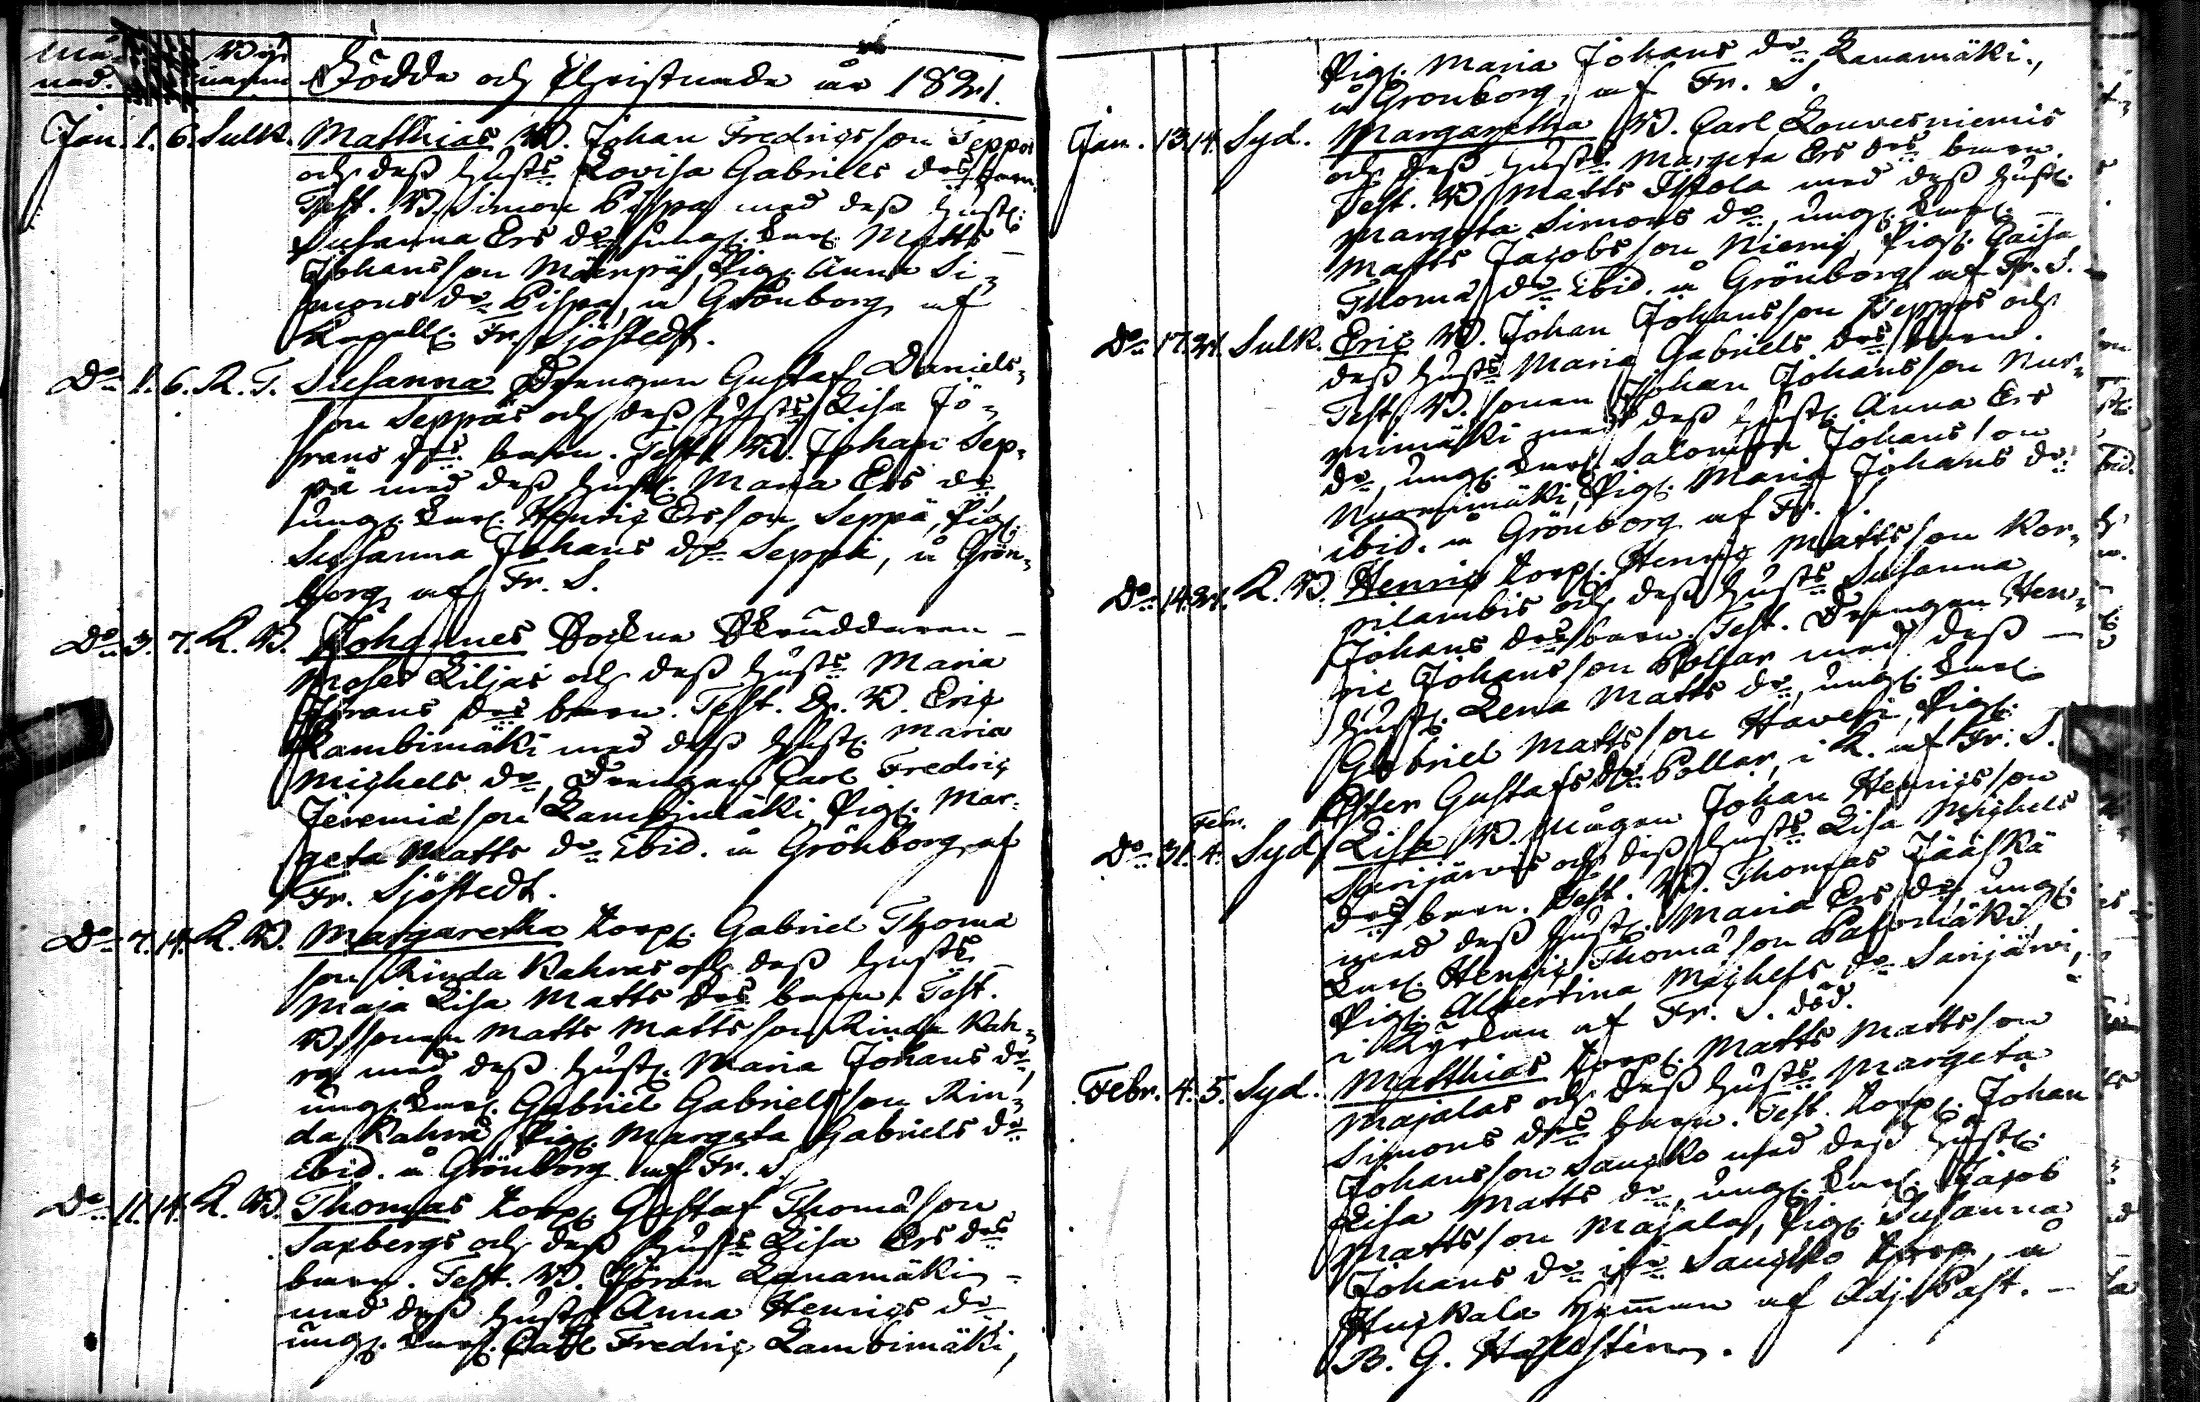 Må-
nad.
Wåg-
narne
Födda och Christnade år 1821.
Jan. 1. 6. Sulk. Matthias B. Johan Fredricsson Seppos
och deß hust:s Lovisa Gabriels d:rs barn.
Test. B. Simon Pispa med deß hust.
Susanna Ers d:r, ung. karl. Matts
Johansson Mäenpä, Pig. Anna Si-
mons d:r Pispa, å Grönborg af
Kapell. Fr. Sjöstedt.
D:o 1. 6. K. T. Susanna Drengen Gustaf Daniels-
son Seppäs och deß hust:s Lisa Jö-
rans d:rs barn. Test. B. Johan Sep-
pä med deß hust. Maria Ers d:r
ung. karl. Henric Ersson Seppä, Pig.
Susanna Johans d:r Seppä, å Grön-
borg af Fr. S.
D:o 3. 7. K. B. Johannes Sockne Skräddaren
Moses Liljas och deß hust:s Maria
Jörans d:rs barn. Test. B. Eric
Lambimäki med deß hust. Maria
Michels d:r, Drengen Carl Fredric
Jeremiason Lambimäki, Pig. Mar-
geta Matts d:r ibid. å Grönborg af
Fr. Sjöstedt.
D:o 7. 14. K. B. Margaretha Torp. Gabriel Thoma
son Rinda Rahvas och deß hust:s
Maja Lisa Matts d:rs barn. Test.
B. sonen Matts Mattsson Rinda Rah-
va med deß hust. Maria Johans d:r,
ung. karl. Gabriel Gabrielsson Rin-
da Rahva, Pig. Margeta Gabriels d:r
ibid. å Grönborg af Fr. S.
D:o 11. 14. K. B. Thomas Torp. Gustaf Thomasson
Saxbergs och deß hust:s Lisa Ers d:rs
barn. Test. B. Jöran Lanamäki
med deß hust. Anna Henrics d:r
ung. karl. Carl Fredric Lambimäki,
Pig. Maria Johans d:r Lanamäki,
å Grönborg, af Fr. S.
Jan. 13. 14. Syd. Margaretha B. Carl Louvesniemis
och deß hust:s Margeta Ers d:rs barn.
Test. B. Matts Istola med deß hust.
Margeta Simons d:r, ung. karl.
Matts Jacobsson Niemi, Pig. Caisa
Thoma d:r ibid. å Grönborg af Fr. S.
D:o 17. 21. Sulk. Eric B. Johan Johansson Seppos och
deß hust:s Maria Gabriels d:rs barn.
Test. B. sonen Johan Johansson Nur-
mimäki med deß hust. Anna Ers
d:r, ung. karl. Salomon Johansson
Nurmimäki, Pig. Maria Johans d:r
ibid. å Grönborg af Fr. S.
D:o 14. 21. K. B. Henric Torp. Henric Mattsson Kor-
pilambis och deß hust:s Susanna
Johans d:rs barn. Test. Drengen Hen-
ric Johansson Pollar med deß
hust. Lena Matts d:r, ung. karl.
Gabriel Mattsson Haveri, Pig.
Ester Gustafs d:r Pollar, i K. af Fr. S.
Febr.
D:o 31. 4. Syd. Lisa B. Mågen Johan Henricsson
Sarijärvis och deß hust:s Lisa Michels
d:rs barn. Test. B. Thomas Jääskä
med deß hust. Maria Ers d:r, ung.
karl. Henric Thomason Palomäki,
Pig. Albertina Michels d:r Sarijärvi,
i Kyrkan af Fr. S. död.
Febr. 4. 5. Syd. Matthias Torp. Matts Mattsson
Majalas och deß hust:s Margeta
Simons d:rs barn. Test. Torp. Johan
Johansson Saucko med deß hust.
Lisa Matts d:r, ung. karl. Jacob
Mattsson Majala, Pig. Susanna
Johans d:r Saucko Torp, å
Huckala hemman af Adj. Past.
B. G. Hallstén.